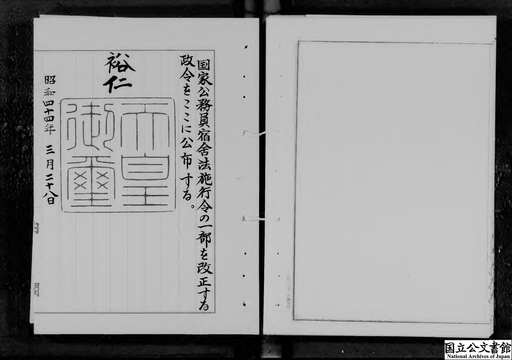 国家公務員宿舎法施行令の一部を改正する
政令をここに公布する。
裕仁
天皇
御璽
昭和四十四年三月二十八日
内
閣
国立公文書館
National Archives of Japan